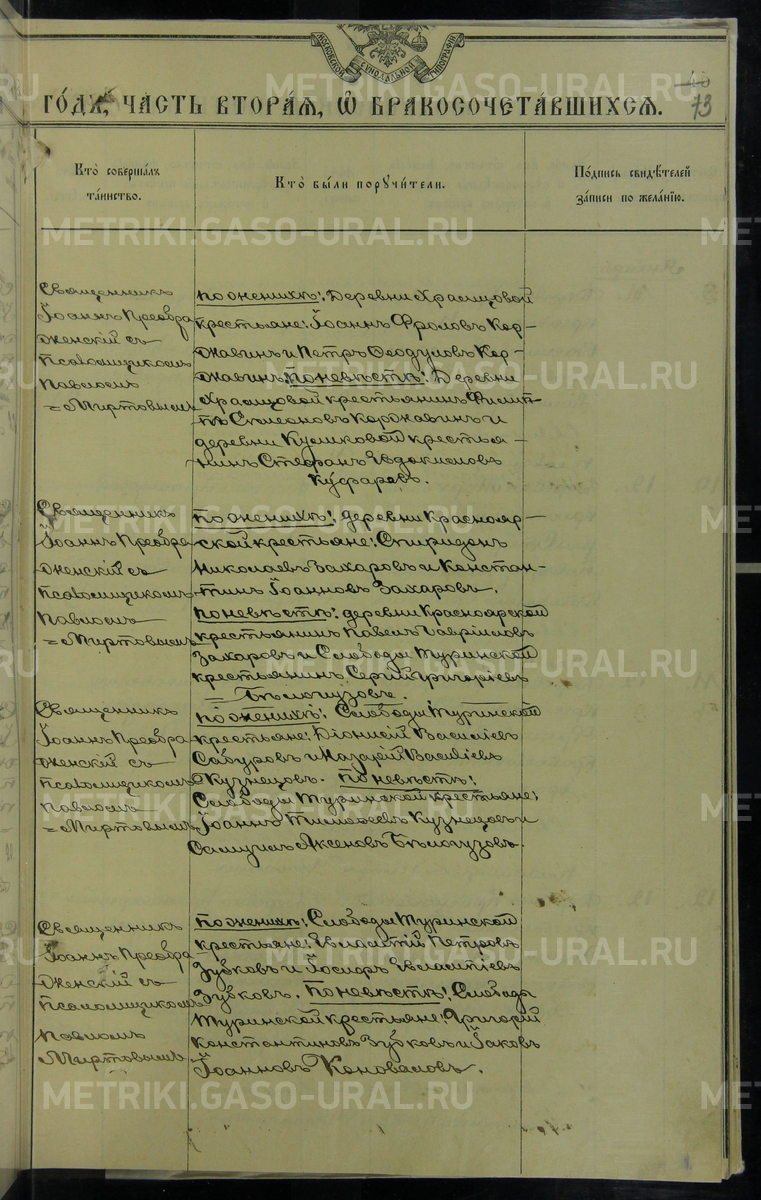 МОСКОВСКОЙ СѶНОДАЛЬНОЙ ТИПОГРАФІИ
METRIKI.GASO-URAL.RU
73
ГО́ДЪ, ЧА́СТЬ ВТОРА́Я, Ѽ БРАКОСОЧЕТА́ВШИХСЯ.
Кто̀ соверша́лъ
та́инство.
Кто̀ бы́ли поручи́тели.
По́дпись свидѣ́телей
за́писи по жела́нію.
Священникъ
Іоаннъ Преобра
женскій съ
псаломщикомъ
Павломъ
=Миртовымъ
по женихѣ: Деревни Храмцовой
крестьяне: Іоаннъ Фроловъ Кор-
жавинъ и Петръ Ѳеодуловъ Кор-
жавинъ. по невѣстѣ: Деревни
Храмцовой крестьянинъ Филип-
пъ Симеоновъ Коржавинъ и
деревни Кушковой крестья-
нинъ Стефанъ Евдокимовъ
Священникъ
Іоаннъ Преобра
женскій съ
псаломщикомъ
Павломъ
=Миртовымъ
по женихѣ: деревни Краснояр-
ской крестьяне: Спиридонъ
Николаевъ Захаровъ и Констан-
тинъ Іоанновъ Захаровъ.
по невѣстѣ: деревни Красноярской
крестьянинъ Павелъ Гавріиловъ
Захаровъ и Слободы Туринской
крестьянинъ Сергій Григоріевъ
=Бѣлогузовъ.
Священникъ
Іоаннъ Преобра
женскій съ
псаломщикомъ
Павломъ
=Миртовымъ
по женихѣ: Слободы Туринской
крестьяне: Діонисій Василіевъ
Сабуровъ и Назарій Василіевъ
Кузнецовъ. по невѣстѣ:
Слободы Туринской крестьяне:
Іоаннъ Тимоѳеевъ Кузнецовъ и
Самуилъ Аксеновъ Бѣлогузовъ.
Священникъ
Іоаннъ Преобра
женскій съ
псаломщикомъ
Павломъ
Миртовымъ
по женихѣ: Слободы Туринской
крестьяне: Евлампій Петровъ
Зубковъ и Іосифъ Евлампіевъ
Зубковъ. По невѣстѣ: Слободы
Туринской крестьяне: Григорій
Константиновъ Зубковъ и Іаковъ
Іоанновъ Коноваловъ.